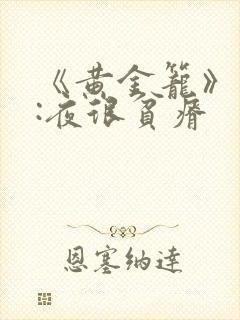 《黄金籠》
:夜很貧瘠
恩塞纳達